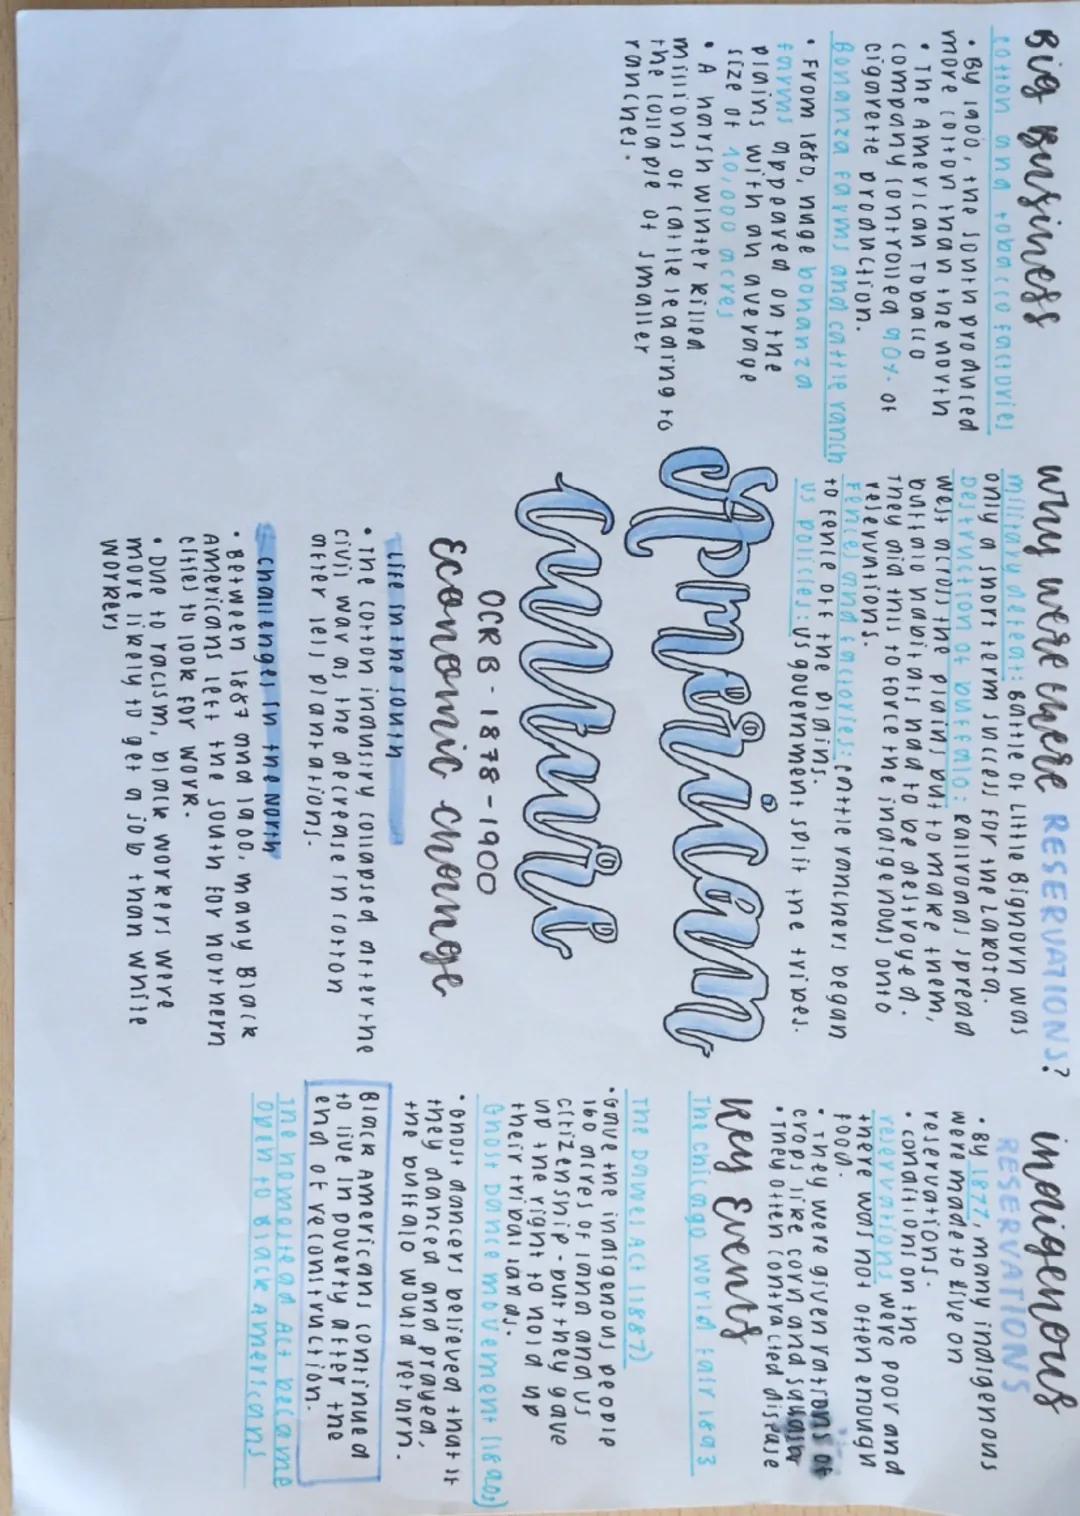 Big Business
cotton and tobacco factories
• By 1900, the south produced
more cotton than the north
• The American Tobacco
company controlled 90% of
cigarette production.
Bonanza farms and cattle ranch
• From 1880, huge bonanza
farms appeared on the
plains with an average
size of 10,000 acres
• A harsh winter killed
millions of cattle leading to
the collapse of smaller
ranches.
Why were there RESERVATIONS?
military defeat: Battle of Little Bighorn was
only a short term success for the Lakota.
Destruction of buffalo: Railroads spread
west across the plains but to make them,
buffalo habitats had to be destroyed.
They did this to force the indigenous onto
reservations.
Fences and factories: cattle ranchers began
to fence off the plains.
US policies: US government split the tribes.
American
Cunning
OCR B - 1878-1900
Economic change
Life in the south
• The cotton industry collapsed after the
civil war as the decrease in cotton
after lels plantations.
challenges in the North
• Between 1887 and 1900, many Black
Americans left the south for northern
cities to look for work.
• Due to racism, black workers were
more likely to get a job than white
workers
indigenous
RESERVATIONS
• By 1877, many indigenous
were made to live on
reservations.
• conditions on the
reservations were poor and
there was not often enough
food.
• They were given rations of
crops like corn and squash
• They often contracted disease
Key Events
The chicago world fair 1893
The Dawes Act (1887)
• Gave the indigenous people
160 acres of land and US
citizenship - but they gave
up the right to hold up
their tribal lands.
Ghost Dance movement (1890s)
• Ghost dancers believed that if
they danced and prayed,
the buffalo would return.
Black Americans continued
to live in poverty after the
end of reconstruction.
The homestead Act became
open to Black Americans